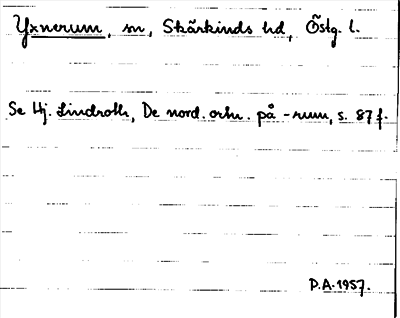 Yxnerum, sn, Skärkinds hd, Östg. l.
Se Hj. Lindroth, De nord. ortn. på -rum, s. 87 f.
P.A. 1957.